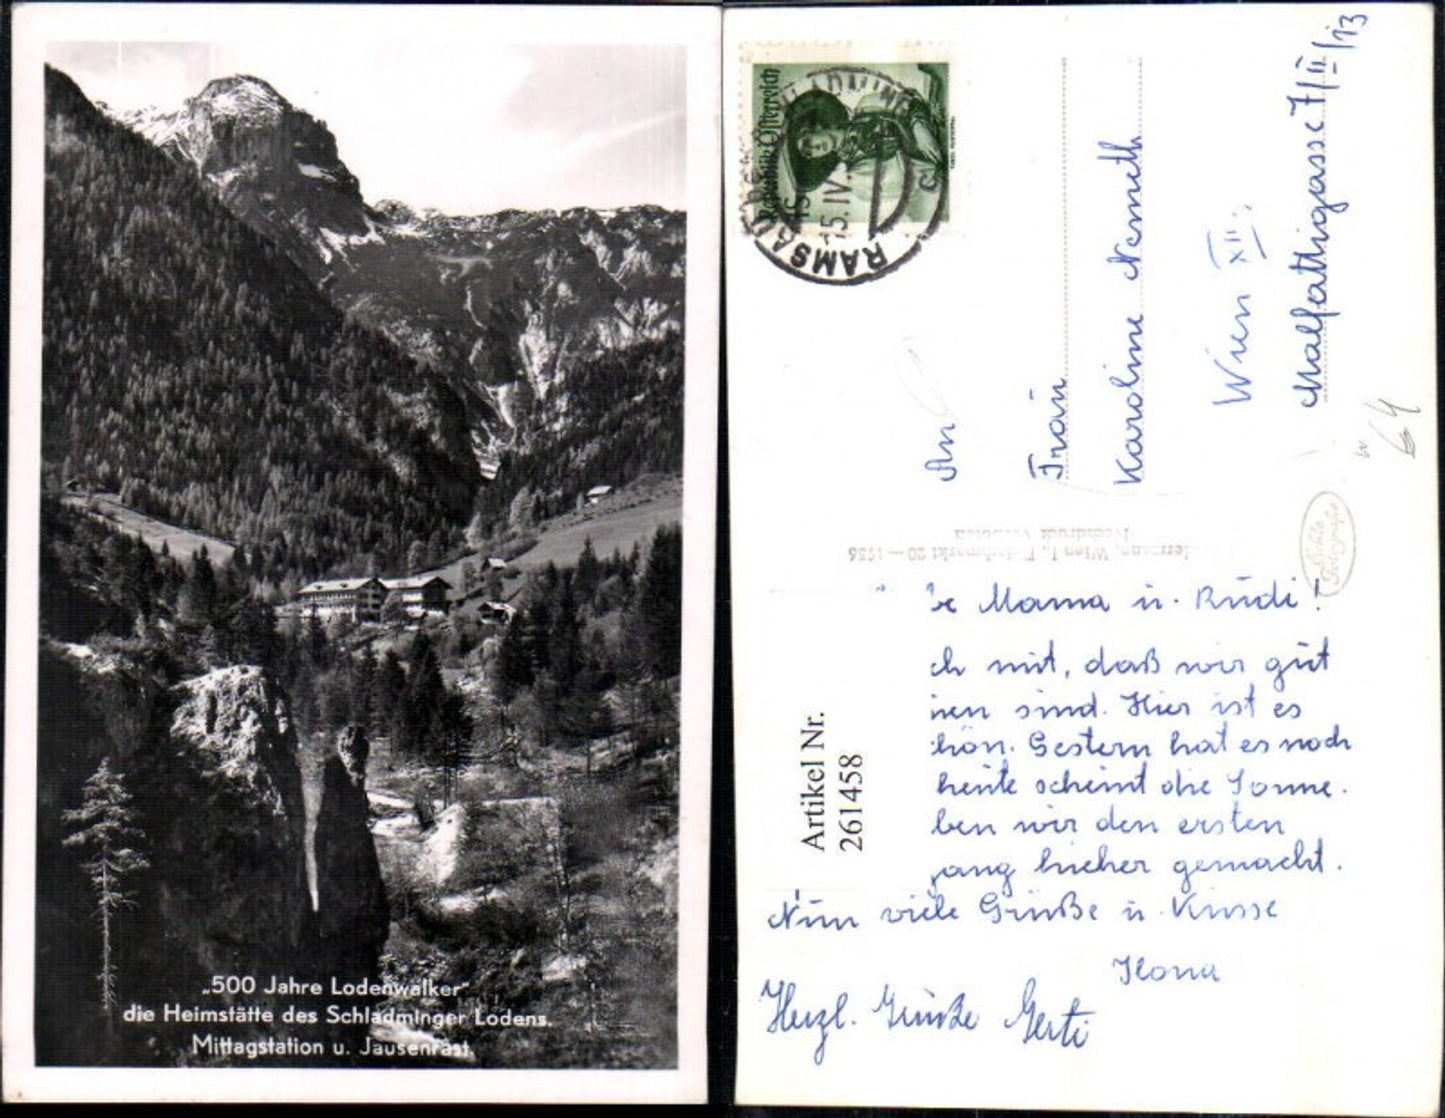 „500 Jahre Lodenwalker"
die Heimstätte des Schladminger Lodens.
Mittagstation u. Jausenrast.
Republik Österreich
RAMSAU
15. IV.
An
Frau
Karoline Nemeth
Wien XII.
Malfattigasse 7/II/13
64
Wien I., Fleischmarkt 20 — 1956
Nachdruck verboten
Echte
Fotografie
Artikel Nr.
261458
be Mama u. Rudi!
ch mit, daß wir gut
nen sind. Hier ist es
hön. Gestern hat es noch
heute scheint die Sonne.
ben wir den ersten
gang bisher gemacht.
Nun viele Grüße u. Küsse
Ilona
Herzl. Grüße Gerti